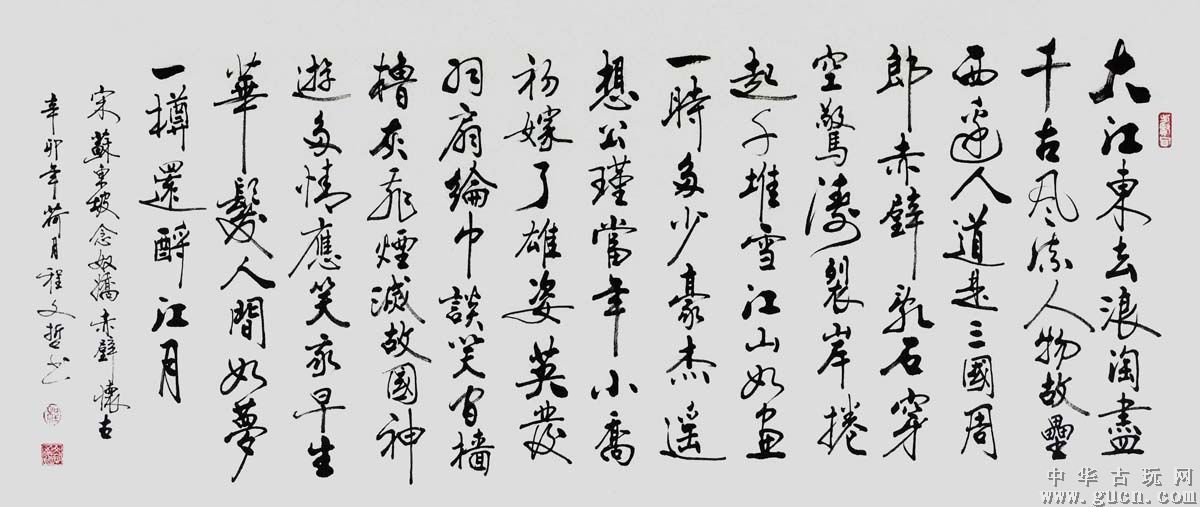 大江東去浪淘盡
千古风流人物故壘
西邊人道是三國周
郎赤壁乱石穿
空驚濤裂岸捲
起千堆雪江山如画
一時多少豪杰遥
想公瑾當年小喬
初嫁了雄姿英發
羽扇綸巾談笑间檣
櫓灰飛煙滅故國神
遊多情應笑我早生
華髮人間如夢
一樽還酹江月
宋蘇東坡念奴嬌赤壁懷古
辛卯年荷月程文哲书
中华古玩网
www.gucn.com